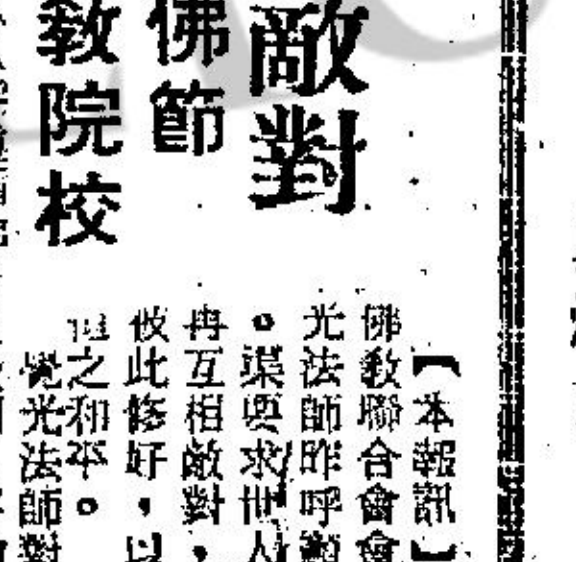 敵對
佛節
教院校
【本報訊】
佛教聯合會會
光法師昨呼
。渠要求世人
冉互相敵對，
彼此修好，以
之和平。
覺光法師對